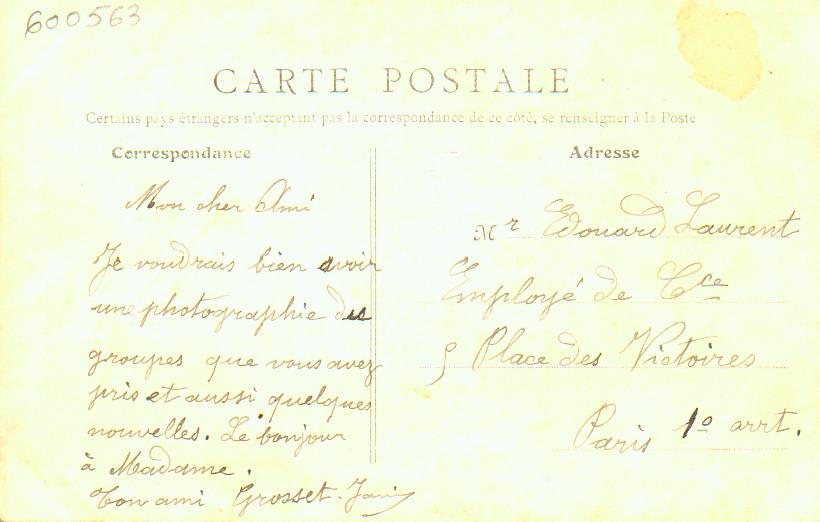 600563
CARTE POSTALE
Certains pays étrangers n'acceptant pas la correspondance de ce côté, se renseigner à la Poste
Correspondance
Mon cher Ami
Je voudrais bien avoir
une photographie des
groupes que vous avez
pris et aussi quelques
nouvelles. Le bonjour
à Madame.
Ton ami Grosset-
Adresse
Mr Edouard Laurent
Employé de Cce
5 Place des Victoires
Paris 1o arrt.